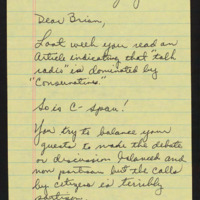 Dear Brian,
Last week you read an
Article indicating that "talk
radio" is dominated by
"Conservatives."
So is C-Span!
You try to balance your
guests to made the debate
or discussion balanced and
non partisan but the calls
by citizens is terribly
partisan.